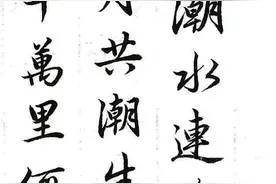 潮水連
共潮生
萬里何